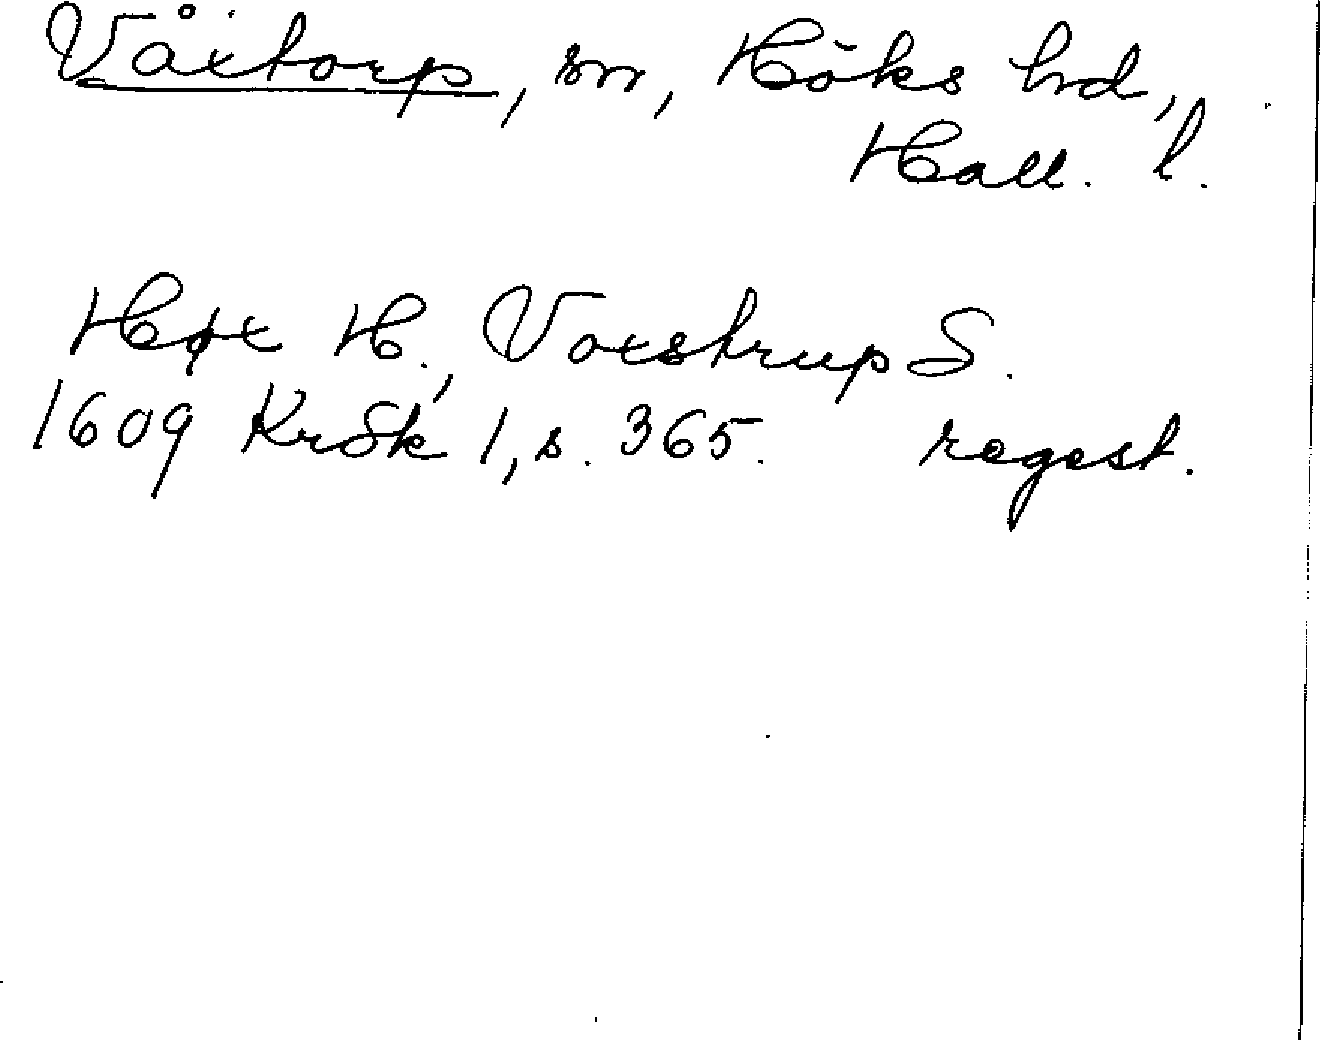 Våxtorp, sn, Höks hrd,
Hall. l.
Høx H., Voxstrup S.
1609 KrSk 1, s. 365. regest.